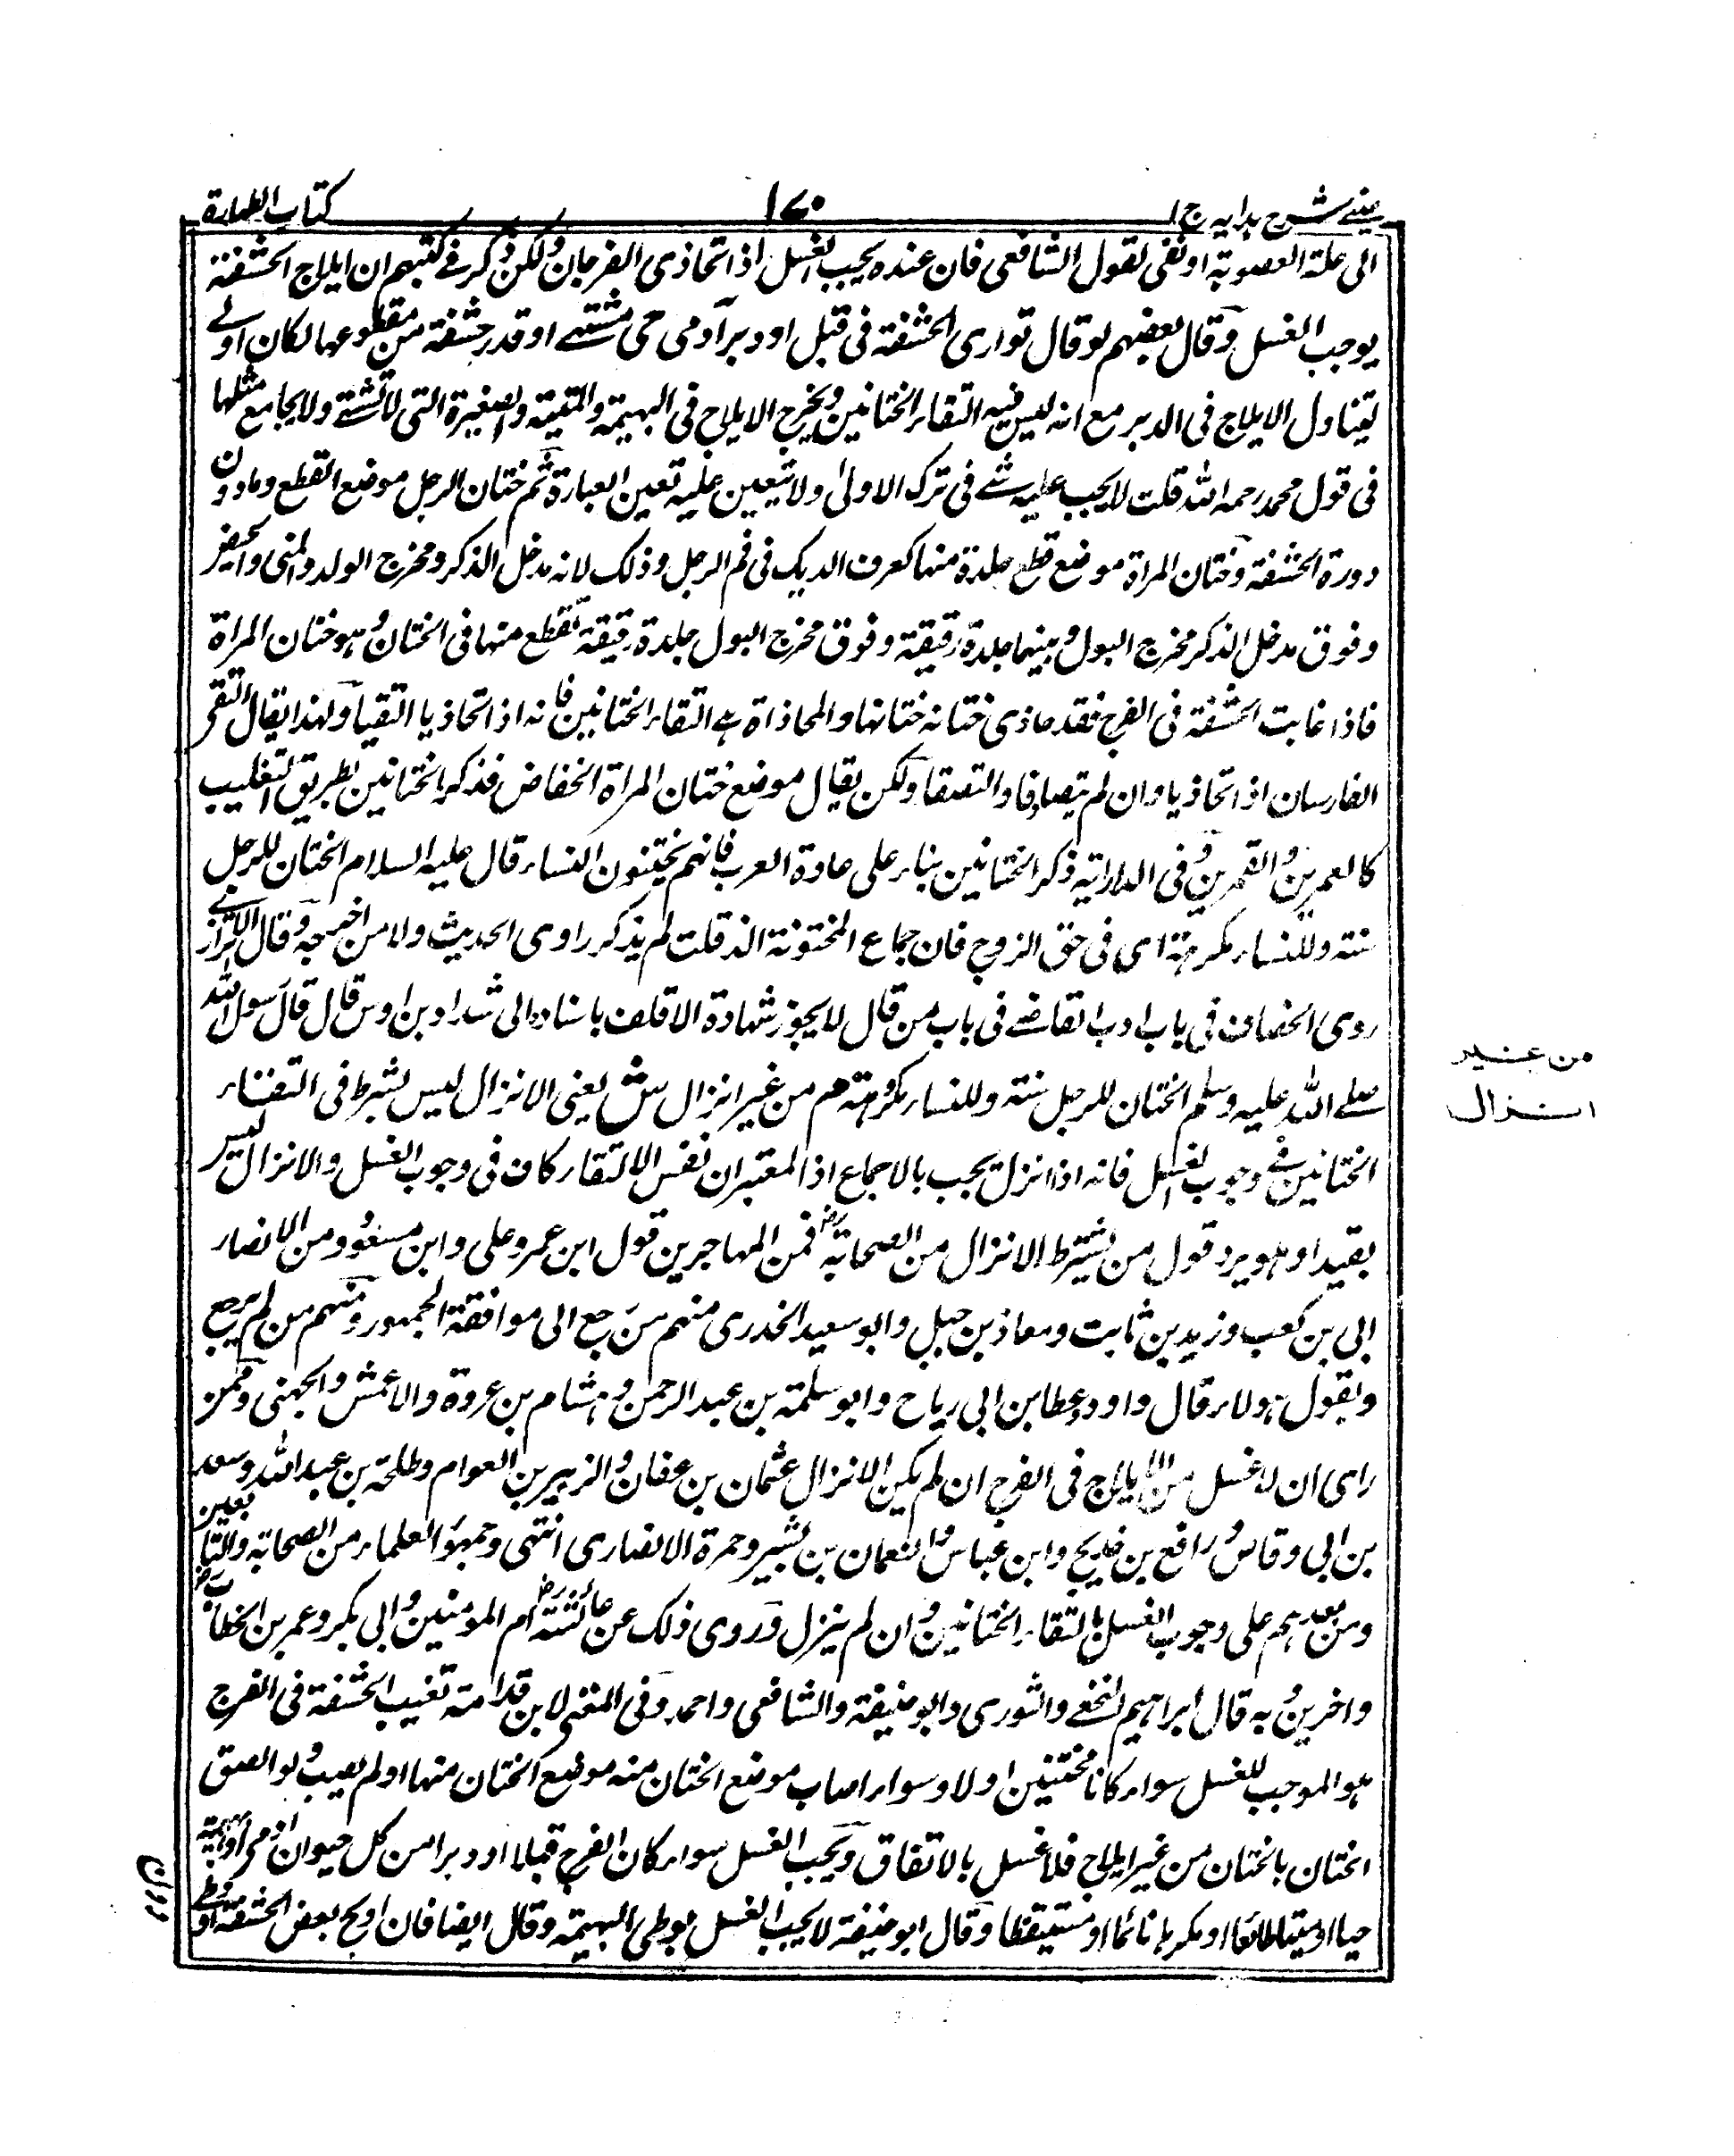 عینی شرح ہدایہ ج ا
۱۷۰
کتاب الطہارۃ
الی علة العصوبة او نفی لقول الشافعی فان عنده یجب الغسل اذا تحاذی الفرجان ولکن ذکر فی کتبہم ان ایلاج الحشفة
یوجب الغسل وقال بعضہم لو قال تواری الحشفة فی قبل او دبر آدمی حی مشتہی او قدر حشفة من مقطوعہا لکان اولی
لتناول الایلاج فی الدبر مع انہ لیس فیہ التقاء الختانین ویخرج الایلاج فی البہیمة والمیتة والصغیرة التی لا تشتہی ولا یجامع مثلہا
فی قول محمد رحمہ اللہ قلت لا یجب علیہ شے فی ترک الاولی ولا یتعین علیہ تعین العبارة ثم ختان الرجل موضع القطع وما دون
دورة الحشفة وختان المراة موضع قطع جلدة منہا کعرف الدیک فی فم الرجل وذلک لانہ مدخل الذکر ومخرج الولد والمنی والحیض
وفوق مدخل الذکر مخرج البول وبینہما جلدة رقیقة وفوق مخرج البول جلدة رقیقة تقطع منہا فی الختان وہو ختان المراة
فاذا غابت الحشفة فی الفرج فقد حاذی ختانہ ختانہا والمحاذاة ہے التقاء الختانین فانہ اذا تحاذیا التقیا ولہذا یقال التقی
الفارسان اذا تحاذیا وان لم یتصادفا والتصقا ولکن یقال موضع ختان المراة الخفاض فذکر الختانین بطریق التغلیب
کالعمرین والقمرین وفی الدرایة ذکر الختانین بناء علی عادة العرب فانہم یختنون النساء قال علیہ السلام الختان للرجل
سنة وللنساء مکرمة ای فی حق الزوج فان جماع المختونة الذ قلت لم یذکر راوی الحدیث ولا من اخرجہ وقال الاترازی
روی الخصاف فی باب ادب القاضے فی باب من قال لا یجوز شہادة الاقلف باسناده الی شداد بن اوس قال قال رسول اللہ
صلے اللہ علیہ وسلم الختان للرجل سنة وللنساء مکرمة م من غیر انزال ش یعنی الانزال لیس بشرط فی التقاء
الختانین فی وجوب الغسل فانہ اذا انزل یجب بالاجماع اذ المعتبر ان نفس الالتقاء کاف فی وجوب الغسل والانزال لیس
بقید او ہو یرد قول من یشترط الانزال من الصحابة رض فمن المہاجرین قول ابن عمر وعلی وابن مسعود ومن الانصار
ابی بن کعب وزید بن ثابت ومعاذ بن جبل وابو سعید الخدری منہم من رجع الی موافقة الجمہور ومنہم من لم یرجع
وبقول ہولاء قال داود وعطا بن ابی رباح وابو سلمة بن عبد الرحمن وہشام بن عروة والاعمش والجہنی وممن
رای ان لا غسل من الایلاج فی الفرج ان لم یکن الانزال عثمان بن عفان والزبیر بن العوام وطلحة بن عبد اللہ وسعد
بن ابی وقاص ورافع بن خدیج وابن عباس والنعمان بن بشیر وحمرة الانصاری انتہی وجمہور العلماء من الصحابة والتابعین
ومن بعدہم علی وجوب الغسل بالتقاء الختانین وان لم ینزل وروی ذلک عن عائشة رض ام المومنین وابی بکر وعمر بن الخطاب رض
واخرین وبہ قال ابراہیم النخعے والثوری وابو حنیفة والشافعی واحمد وفی المغنی لابن قدامة تغییب الحشفة فی الفرج
ہو الموجب للغسل سواء کانا مختتنین اولا وسواء اصاب موضع الختان منہ موضع الختان منہا او لم یصب ولو الصق
الختان بالختان من غیر ایلاج فلا غسل بالاتفاق ویجب الغسل سواء کان الفرج قبلا او دبرا من کل حیوان ادمی او بہیمة
حیا او میتا طائعا او مکرہا نائما او مستیقظا وقال ابو حنیفة لا یجب الغسل بوطی البہیمة وقال ایضا فان اولج بعض الحشفة او وطی
من غیر
انزال
دون